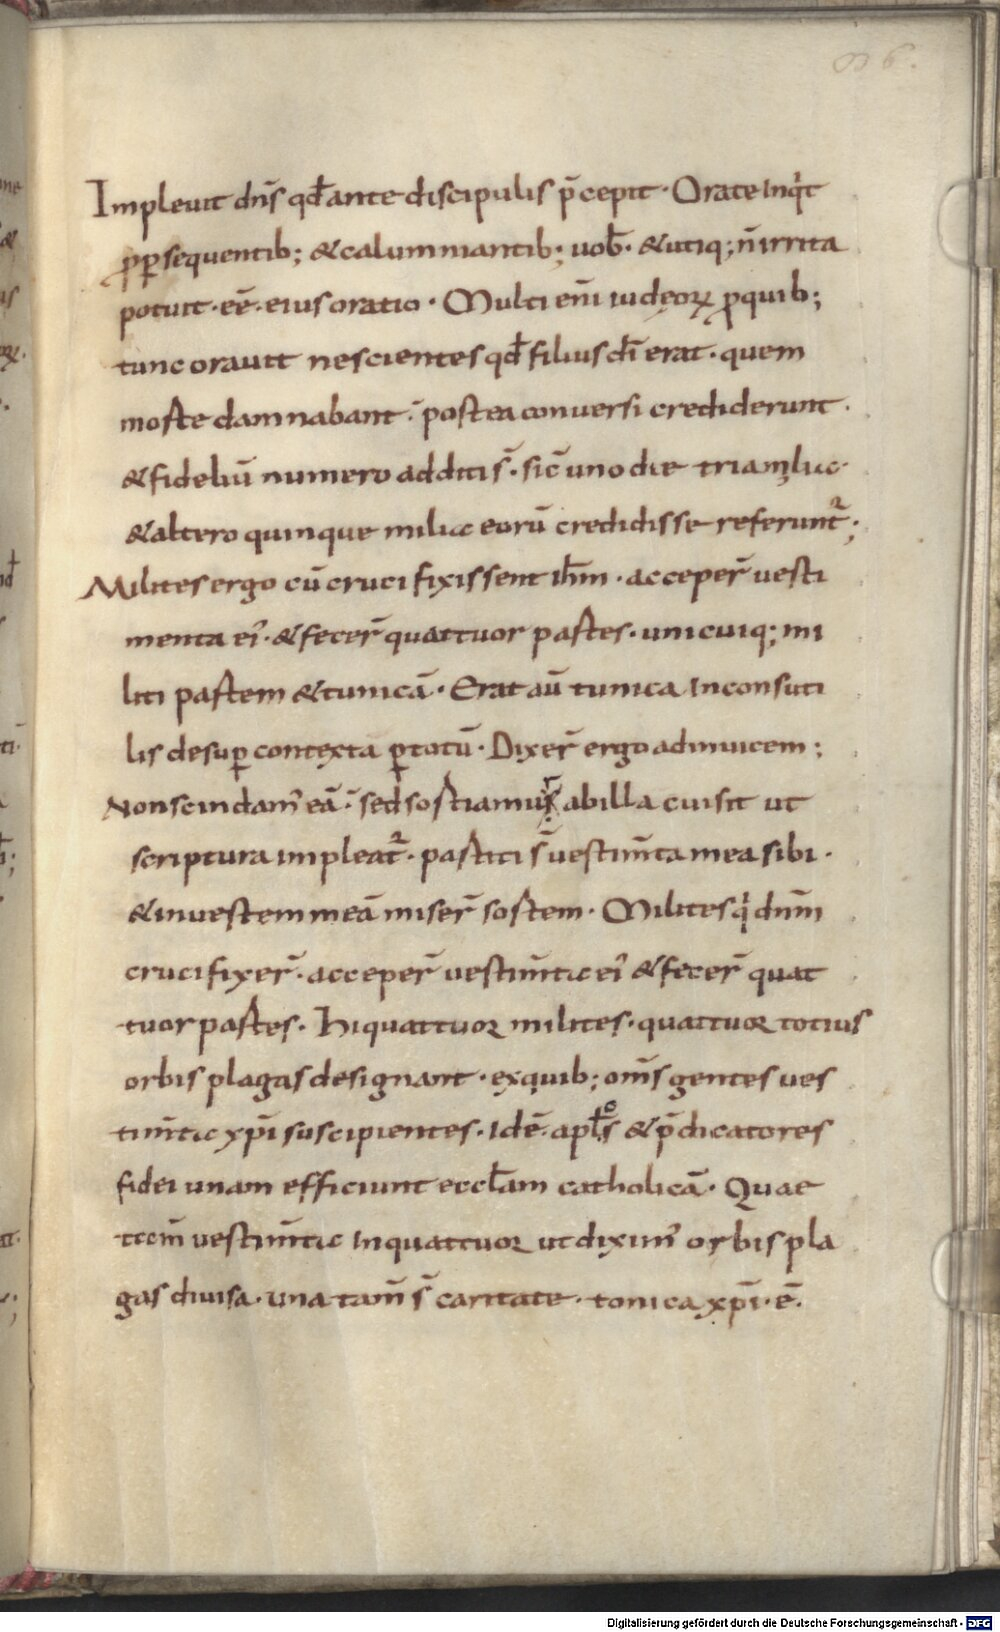 96.
Impleuit dn̄s qđ ante discipulis p̄cepit · Orate inqͥt
ꝓ ꝑsequentib; & calumniantib; uob̄ · & utiq; n̄ irrita
potuit · eē · eius oratio · Multi eni̅ iudęoꝝ ꝓ quib;
tunc orauit nescientes qđ filius dī erat · quem
morte damnabant · postea conuersi crediderunt ·
& fideliū numero additi s̄ · sic̄ uno die tria milia ·
& altero quinque milia eorū credidisse referunt᷑;
Milites ergo cū crucifixissent ih̄m · acceper̄ uesti
menta ei᷒ · & fecer̄ quattuor partes · unicuiq; mi
liti partem & tunicā · Erat au̅ tunica inconsuti
lis desuꝑ contexta ꝑ totū · Dixer̄ ergo adinuicem;
Non scindam᷒ eā · sed sortiamur ab illa cui sit ut
scriptura impleat᷑ · partiti s̄ uestim̄ta mea sibi ·
& in uestem meā miser̄ sortem · Milites qͥ dn̄m
crucifixer̄ · acceper̄ uestim̄ta ei᷒ & fecer̄ quat
tuor partes · Hi quattuor milites · quattuor totius
orbis plagas designant · ex quib; om̄s gentes ues
tim̄ta xp̄i suscipientes · Idē · apłōs & p̄dicatores
fidei unam efficiunt eccłam catholicā · Quae
tam̄ uestim̄ta in quattuor ut dixim᷒ orbis pla
gas diuisa · una tam̄ s̄ caritate · tonica xp̄i · ē ·
Digitalisierung gefördert durch die Deutsche Forschungsgemeinschaft - DFG